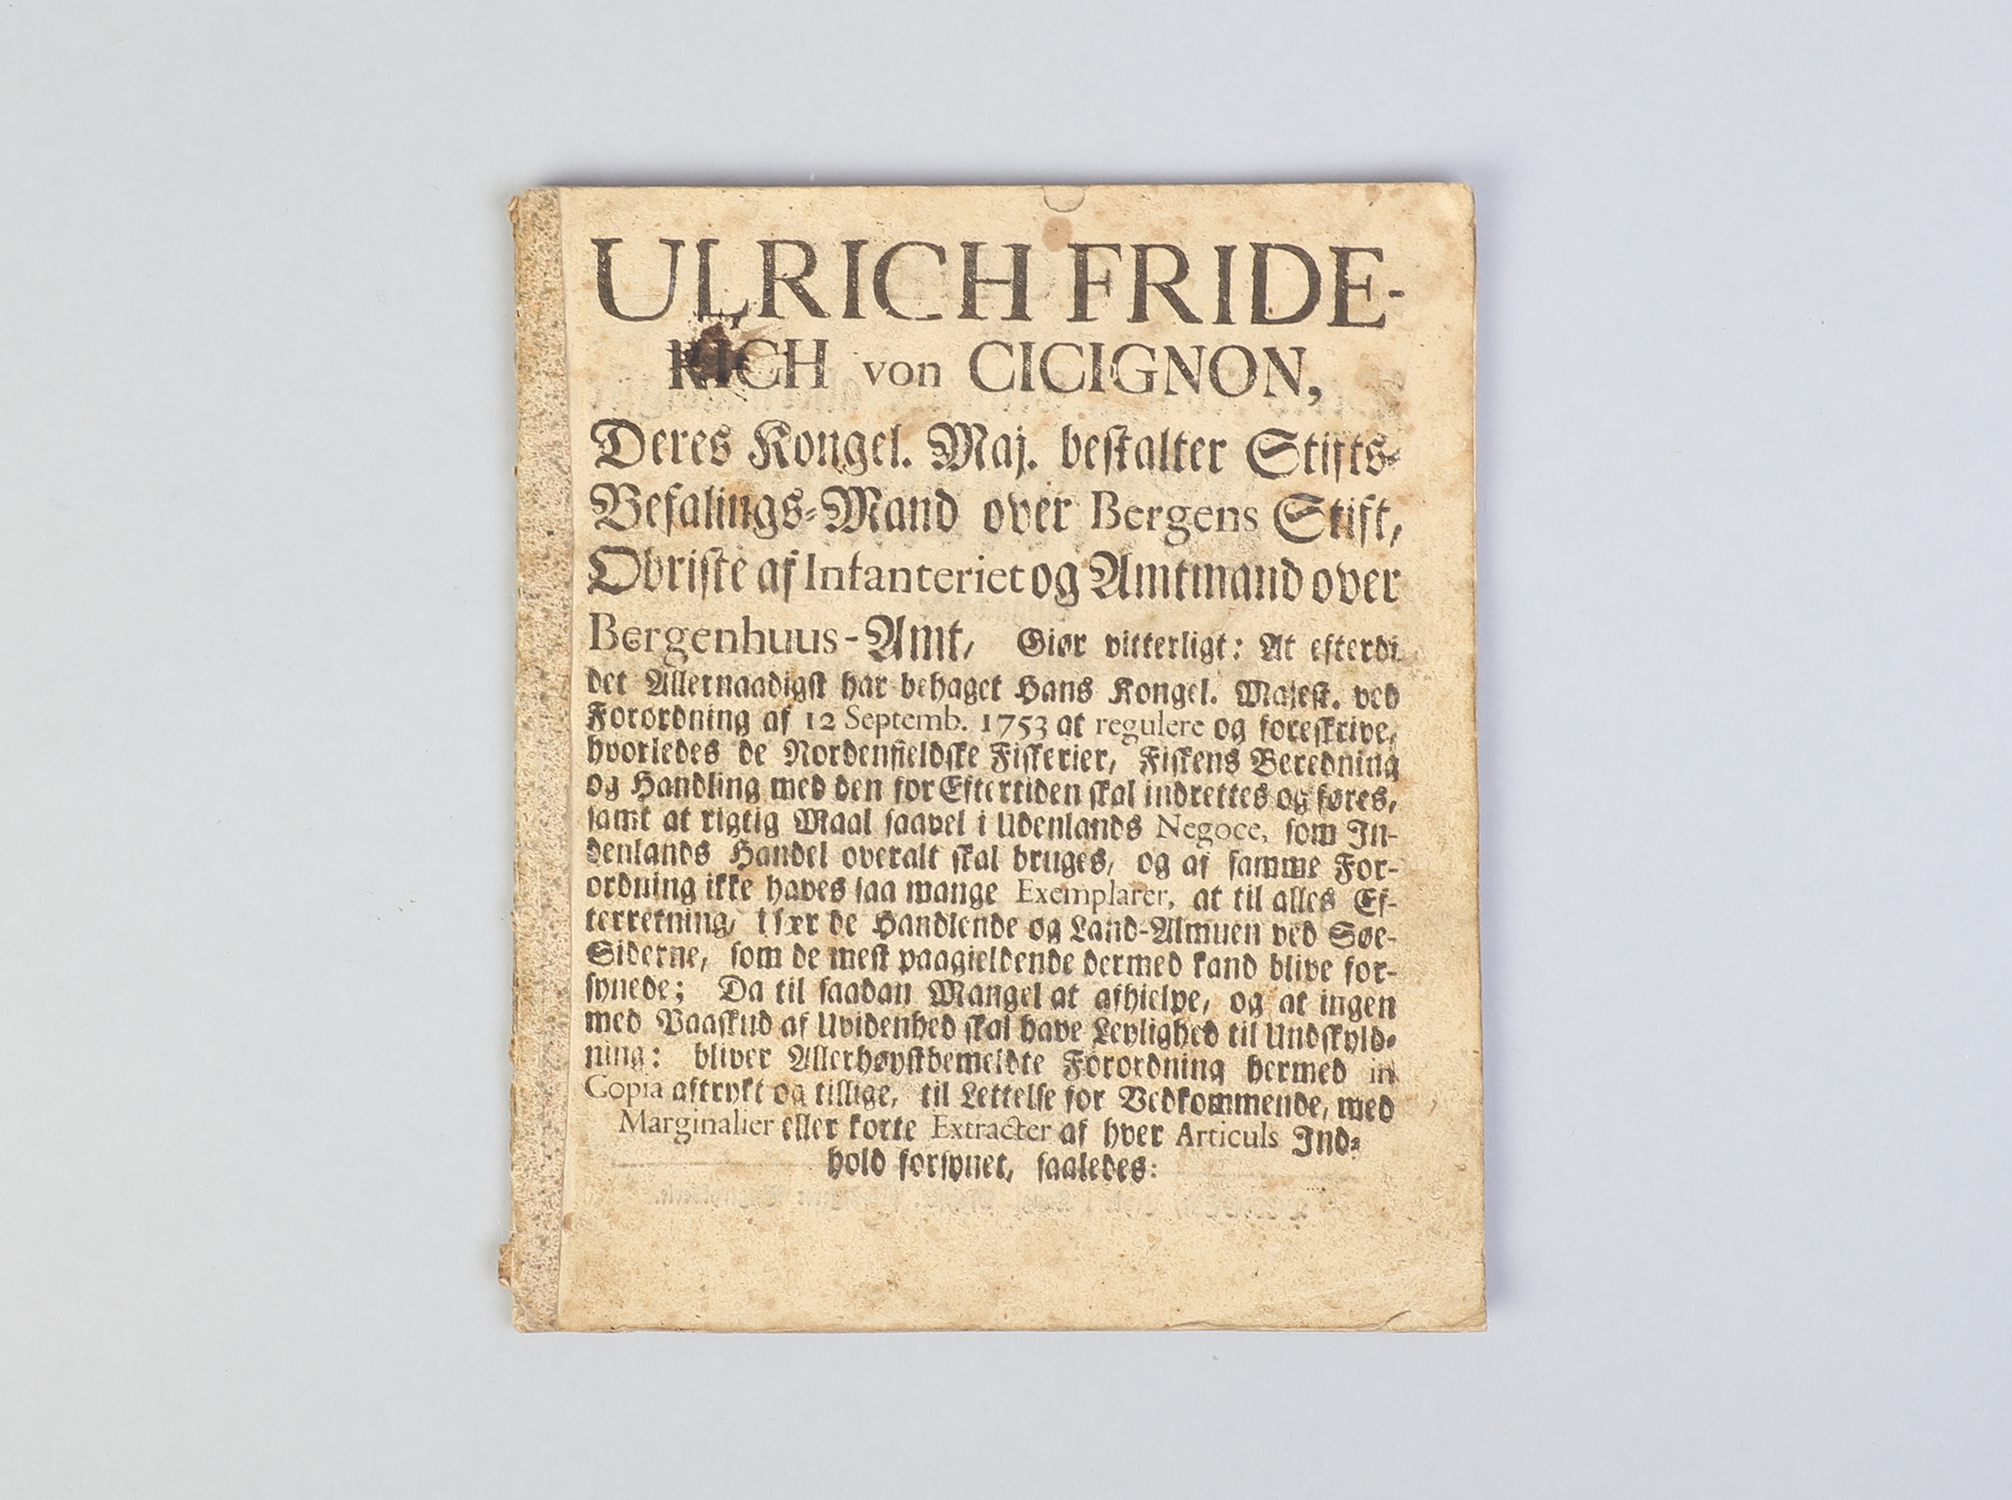 ULRICH FRIDE-
RICH von CICIGNON,
Deres Kongel. Maj. bestalter Stifts-
Befalings-Mand over Bergens Stift,
Obriste af Infanteriet og Amtmand over
Bergenhuus-Amt, Giør vitterligt: At efterdi
det Allernaadigst har behaget Hans Kongel. Majest. ved
Forordning af 12 Septemb. 1753 at regulere og foreskrive,
hvorledes de Nordenfieldske Fiskerier, Fiskens Beredning
og Handling med den for Eftertiden skal indrettes og føres,
samt at rigtig Maal saavel i Udenlands Negoce, som In-
denlands Handel overalt skal bruges, og af samme For-
ordning ikke haves saa mange Exemplarer, at til alles Ef-
terretning, i sær de Handlende og Land-Almuen ved Søe-
Siderne, som de mest paagieldende dermed kand blive for-
synede; Da til saadan Mangel at afhielpe, og at ingen
med Paaskud af Uvidenhed skal have Leylighed til Undskyld-
ning: bliver Allerhøystbemeldte Forordning hermed in
Copia aftrykt og tillige, til Lettelse for Vedkommende, med
Marginalier eller korte Extracter af hver Articuls Ind-
hold forsynet, saaledes: